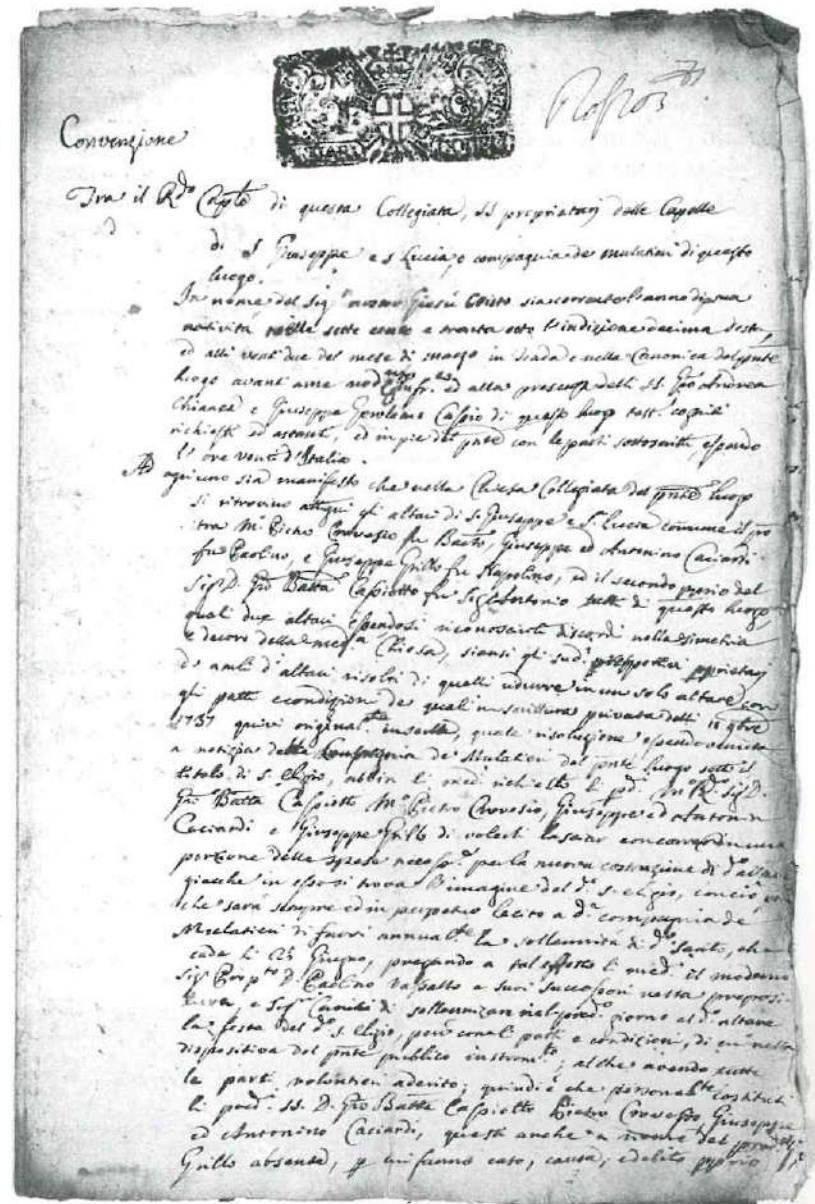 Convenzione
Tra il R.do Cap.lo di questa Collegiata, SS propriatarj delle Capelle
di S Giuseppe e S Lucia, e compagnia de mulatieri di questo
luogo.
In nome del Sig.r nostro Giesù Cristo sia corrente l'anno di sua
natività mille sette cento e trenta otto l'indizione decima sesta,
ed alli venti due del mese di marzo in e nella Canonica del pnte
luogo avanti a me nod.o ed alla presenza delli SS. Gio Andrea
Chianea e Giuseppe Gerolamo Cassio di questo luogo test. cogniti
richiesti ed astanti, ed in pie del pnte con le parti sottoscritti, essendo
l'ore venti d'Italia.
Ad ogni uno sia manifesto che nella Chiesa Collegiata del pnte luogo
si ritrovino gli altari di S. Giuseppe e S. Lucia comune il pro
tra M.o Pietro Crovesio fu Batto, Giuseppe ed Antonino Caciardi
fu Paolino, e Giuseppe Grillo fu Napolino, ed il secondo pprio del
Sig.r D. Gio Batta Cassiotto fu Sig.r Antonio tutti di questo luogo
quali due altari essendosi riconosciuti discordi nella simetria
e decoro della med.a Chiesa, siansi gli sud.i pprietarj
de ambi d'altari risolti di quelli ridurre in un solo altare con
gli patti e condizioni de quali in scrittura privata delli 11 9bre
1737 quivi original.te inserta, quale risoluzione essendo venuta
a notizia della Compagnia de Mulatieri del pnte luogo sotto il
titolo di S. Eligio, abbin li med.i richiesto li pd.i M.o R.do Sig.r D.
Gio Batta Cassiotto M.o Pietro Crovesio, Giuseppe ed Antonin
Caciardi e Giuseppe Grillo di volerli lasciar concorrer in una
porzione delle spese necess.e per la nuova costrazione di d.o altare
giacche in esso si trova l'imagine del d.o S. Eligio, con ciò
che sarà sempre ed in perpetuo lecito a d.a compagnia de
Mulatieri di farvi annual.te la sollennità di d.o Santo, che
cade li 25 Giugno, pregando a tal effetto li med.i il moderno
Sig.r Prep.to D. Paolino Vassallo e suoi successori nella preposi-
tura, e Sig.ri Canonici di sollennizar nel pred.o giorno al d.o altare
la festa del d.o S. Eligio, però con li patti e condizioni, di cui nella
dispositiva del pnte publico instrom.to; al che avendo tutte
le parti volontieri aderito; quindi è che personal.te costituti
li pred.i SS. D. Gio Batta Cassiotto Pietro Crovesio Giuseppe
ed Antonino Caciardi, questi anche a nome del pred.o
Grillo absente, p cui fanno caso, causa, e debito pprio